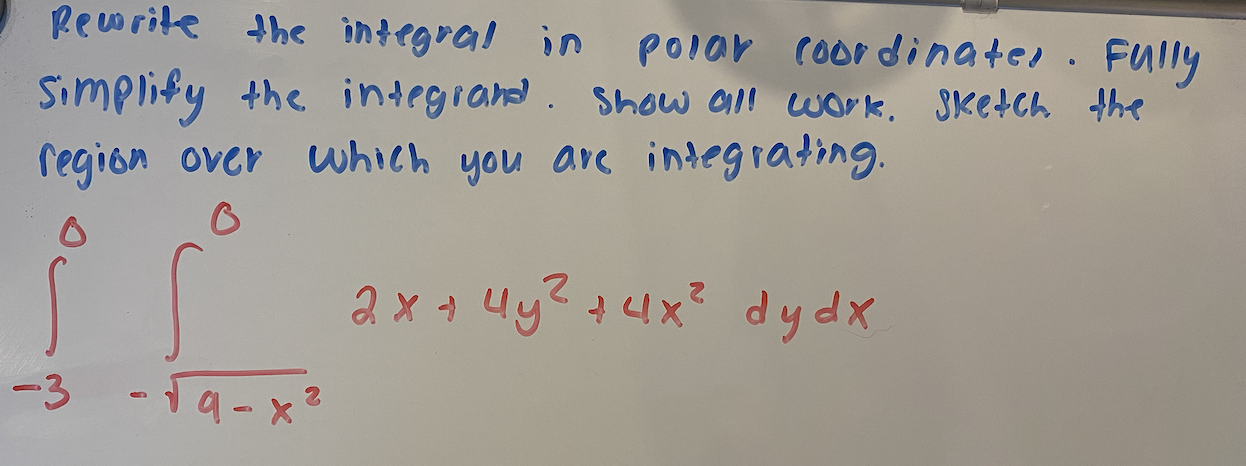 Rewrite the integral in polar coordinates. Fully
simplify the integrand. Show all work. Sketch the
region over which you are integrating.
∫_{-3}^{0} ∫_{-√(9-x²)}^{0} 2x + 4y² + 4x² dy dx